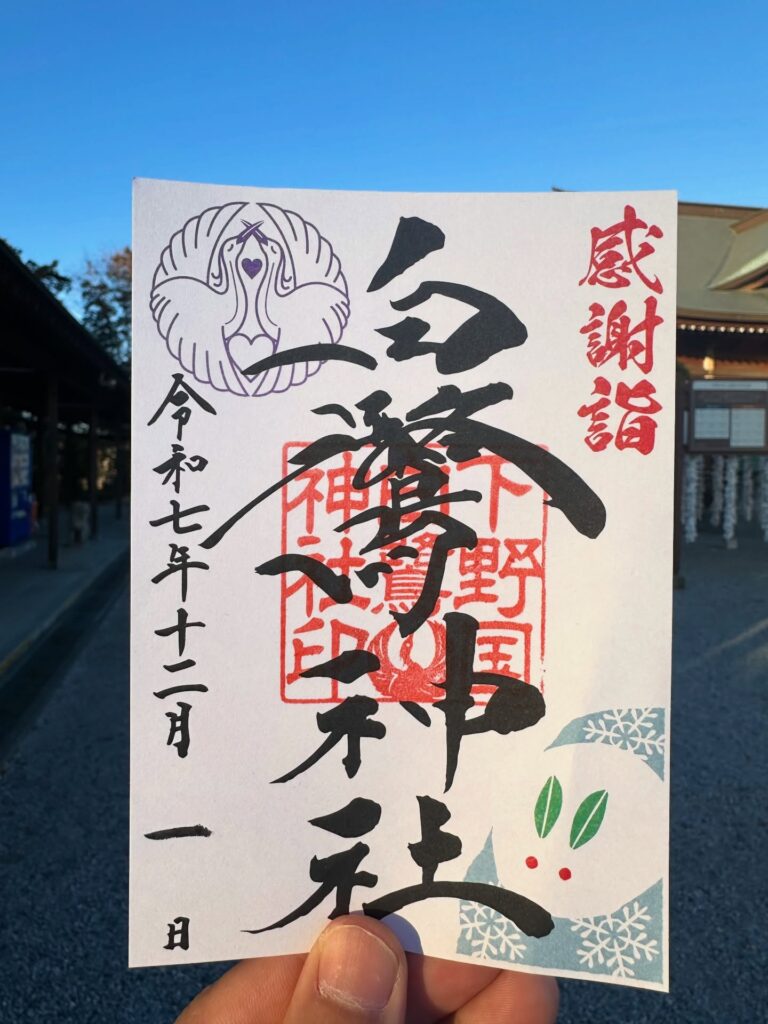 感謝詣
白鷺神社
下野国
白鷺
神社印
令和七年十二月一日